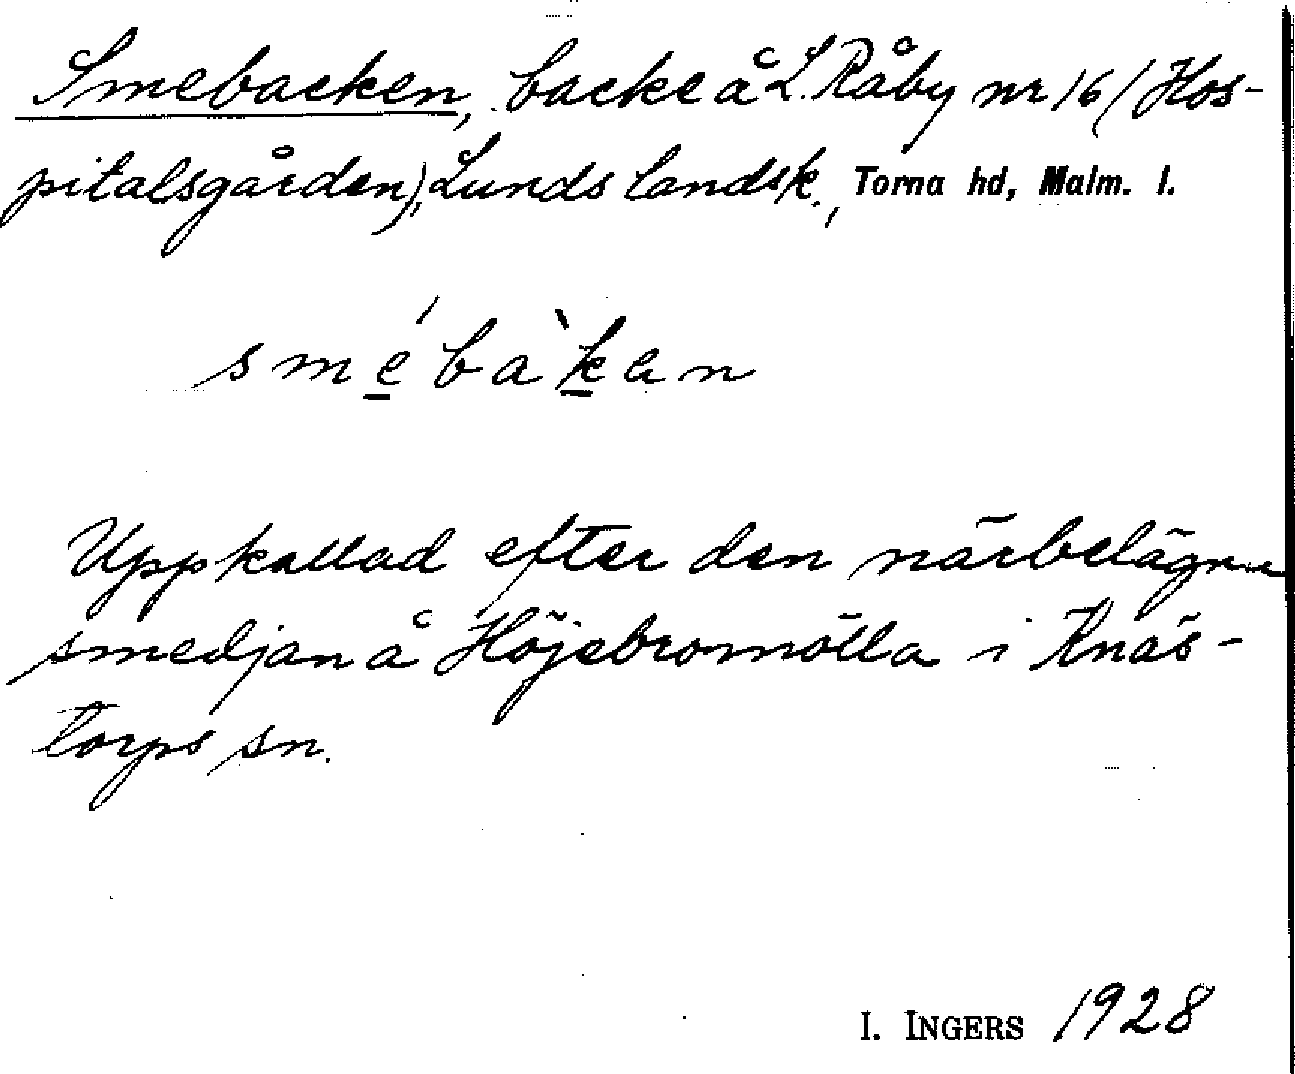 Smebacken, backe å L. Råby nr 16 (Hos-
pitalsgården), Lunds landsk., Torna hd, Malm. l.
smé̲bàk̲en
Uppkallad efter den närbelägna
smedjan å Höjebromölla i Knäs-
torps sn.
I. INGERS 1928